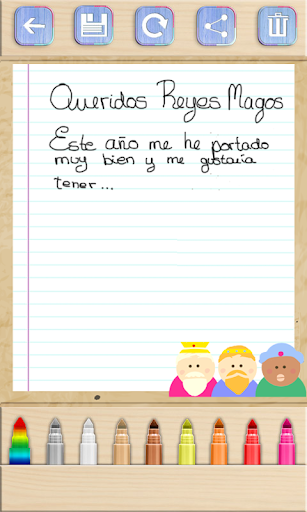 Queridos Reyes Magos
Este año me he portado
muy bien y me gustaría
tener...